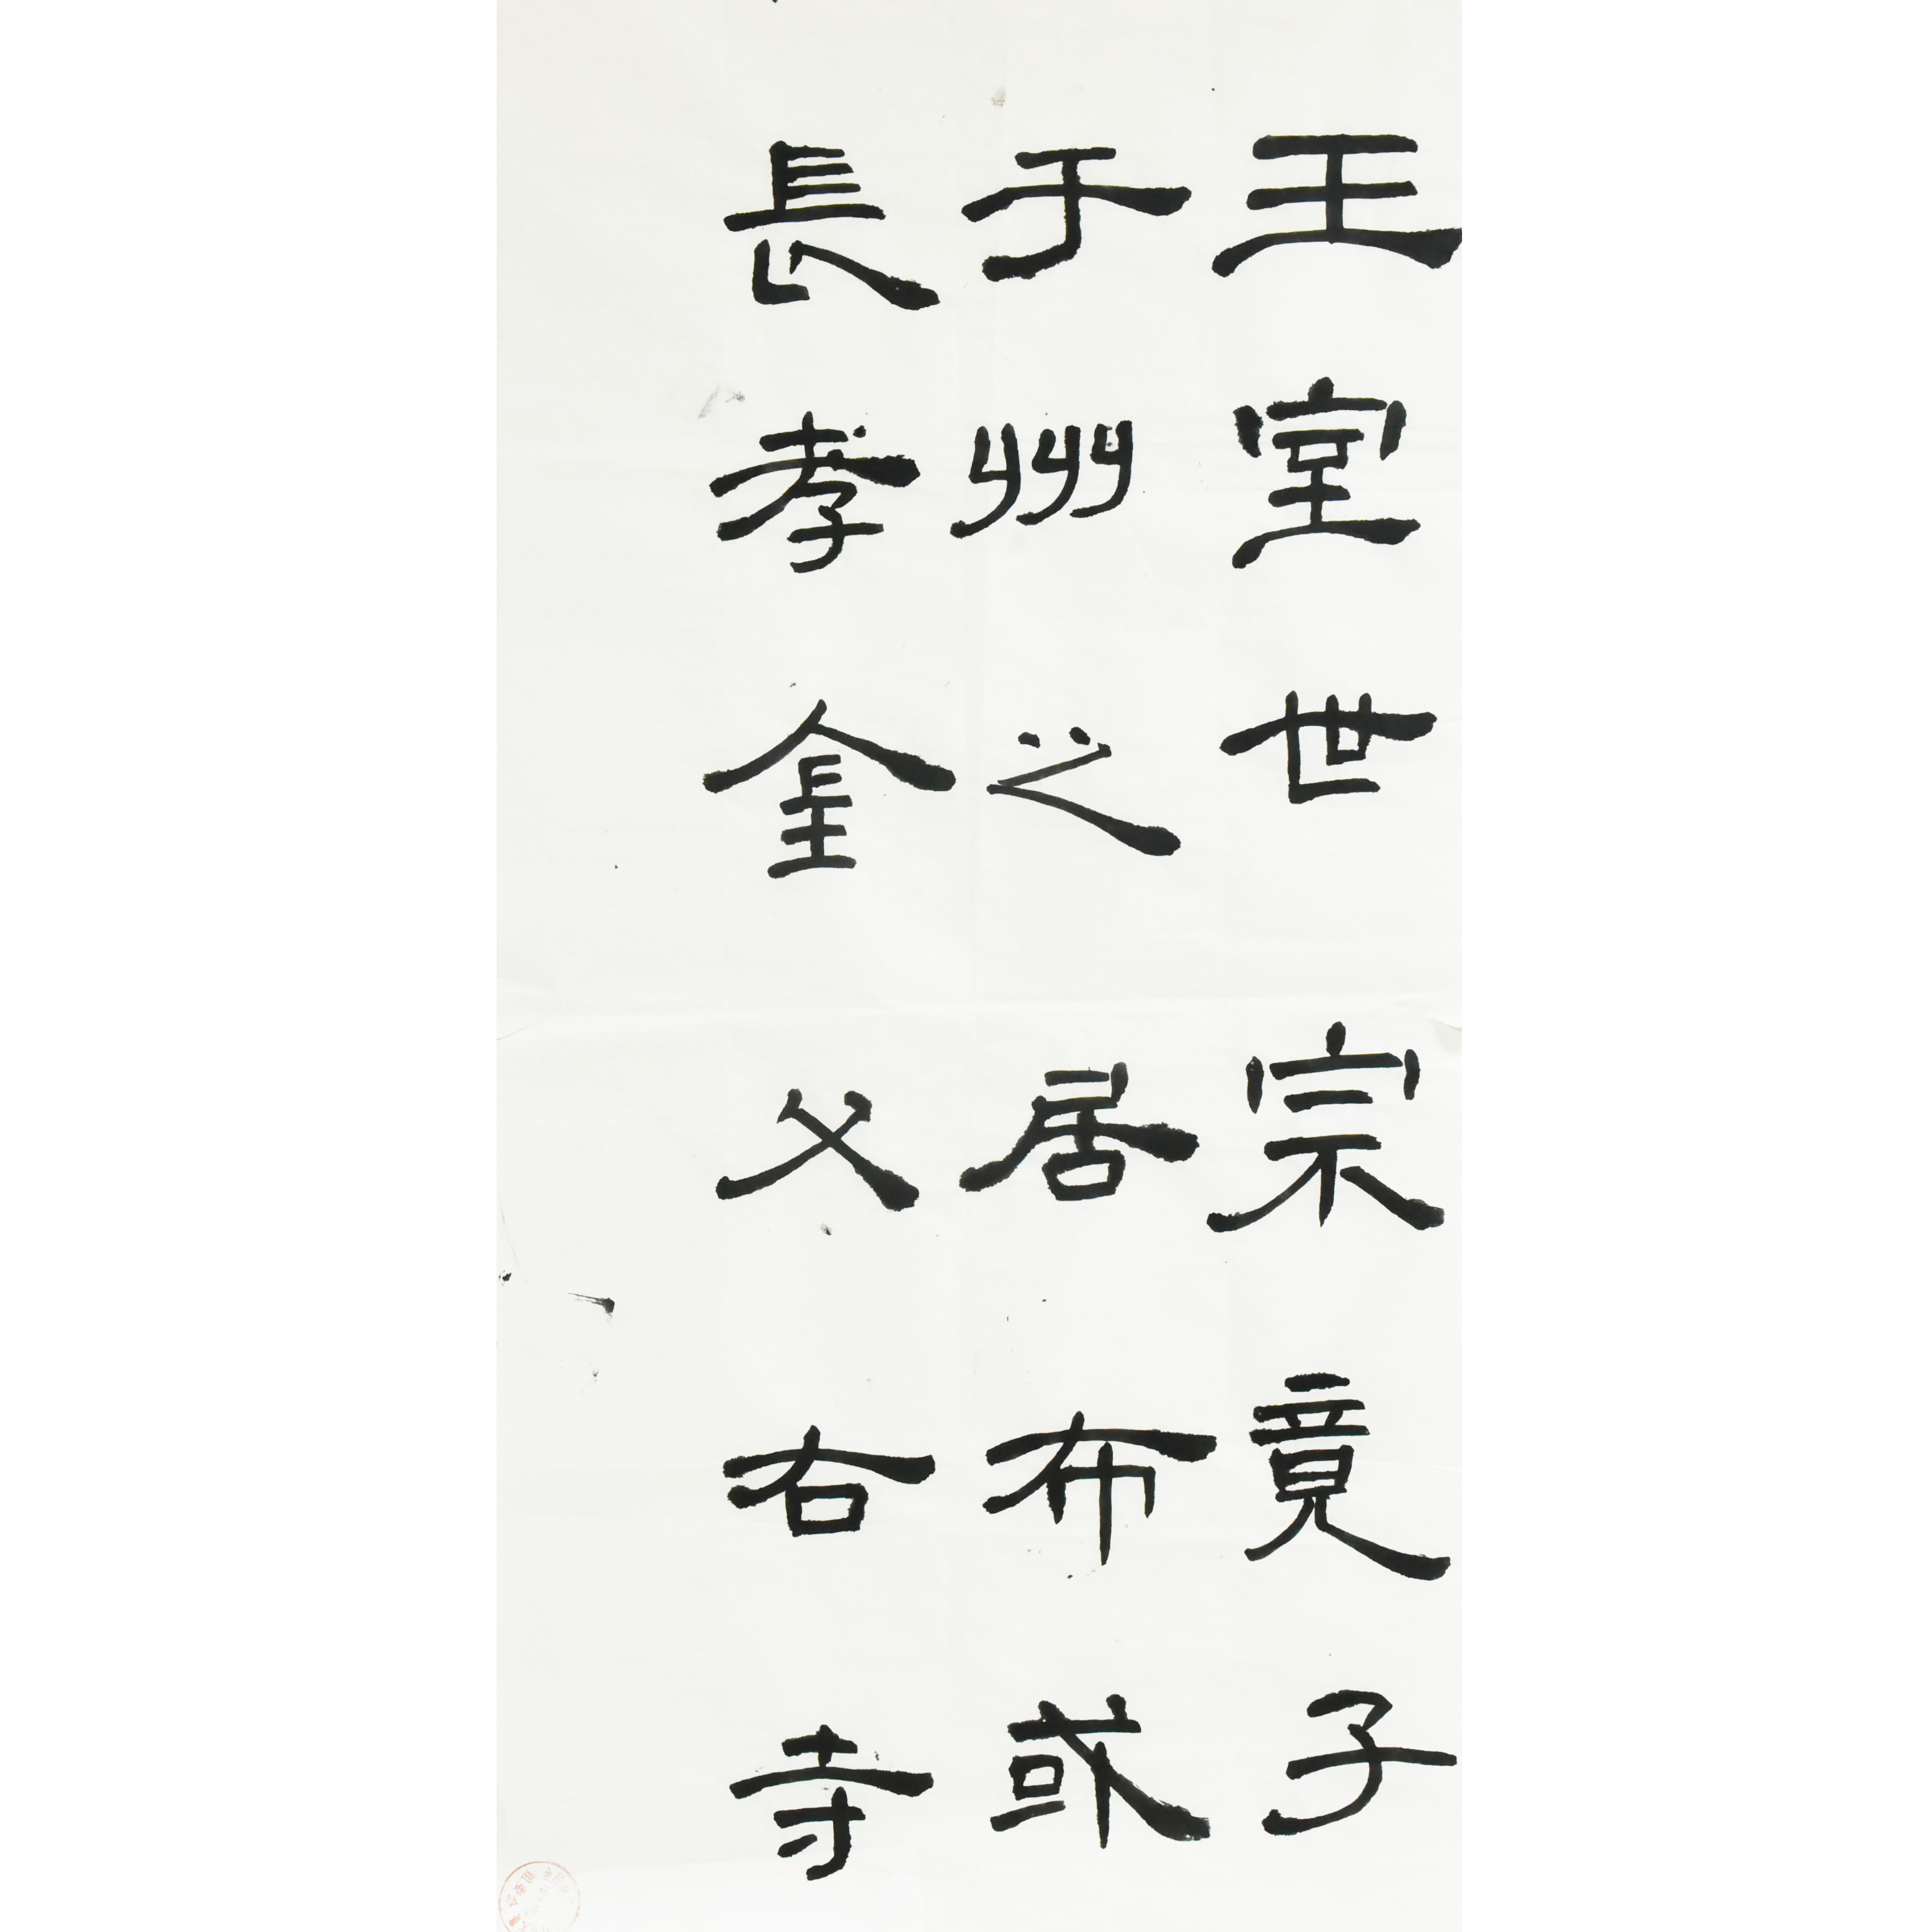 王室世宗竟子
于州之居布或
長孝金父右寺